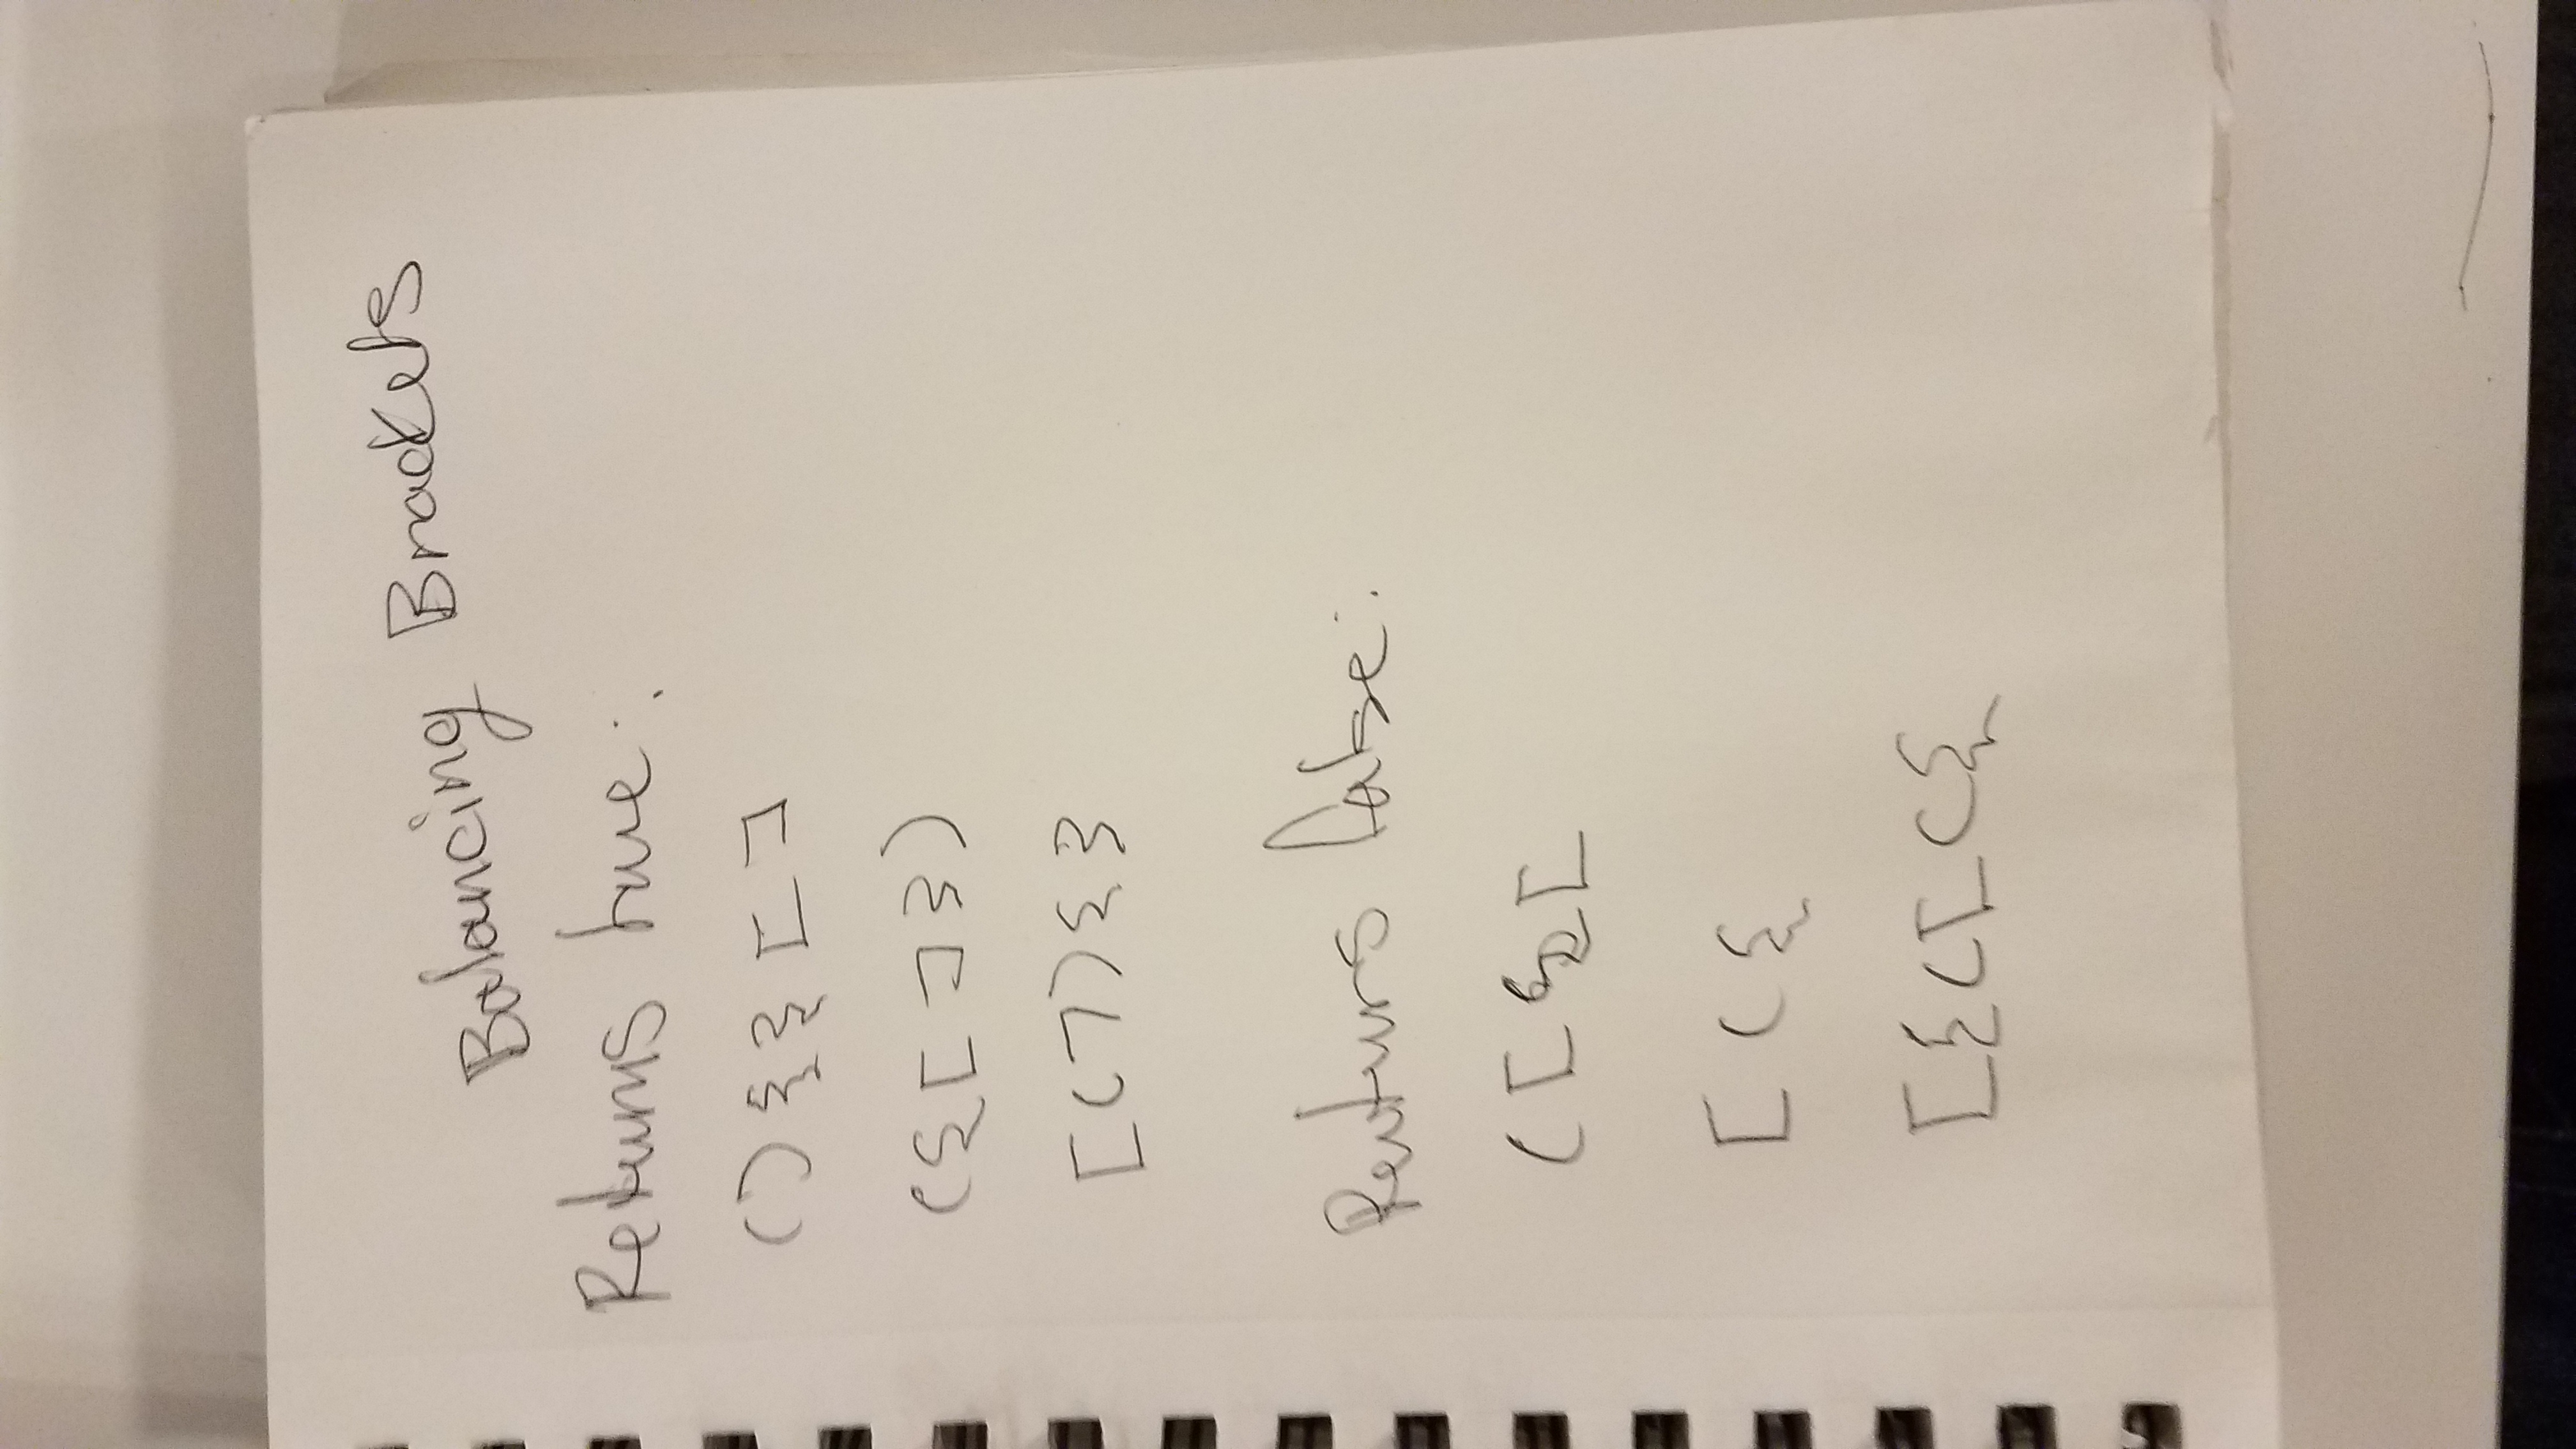 Balancing Brackets
Returns true:
(){}[]
({[]})
[(]){}
Returns false:
([{[
[({
[{([({